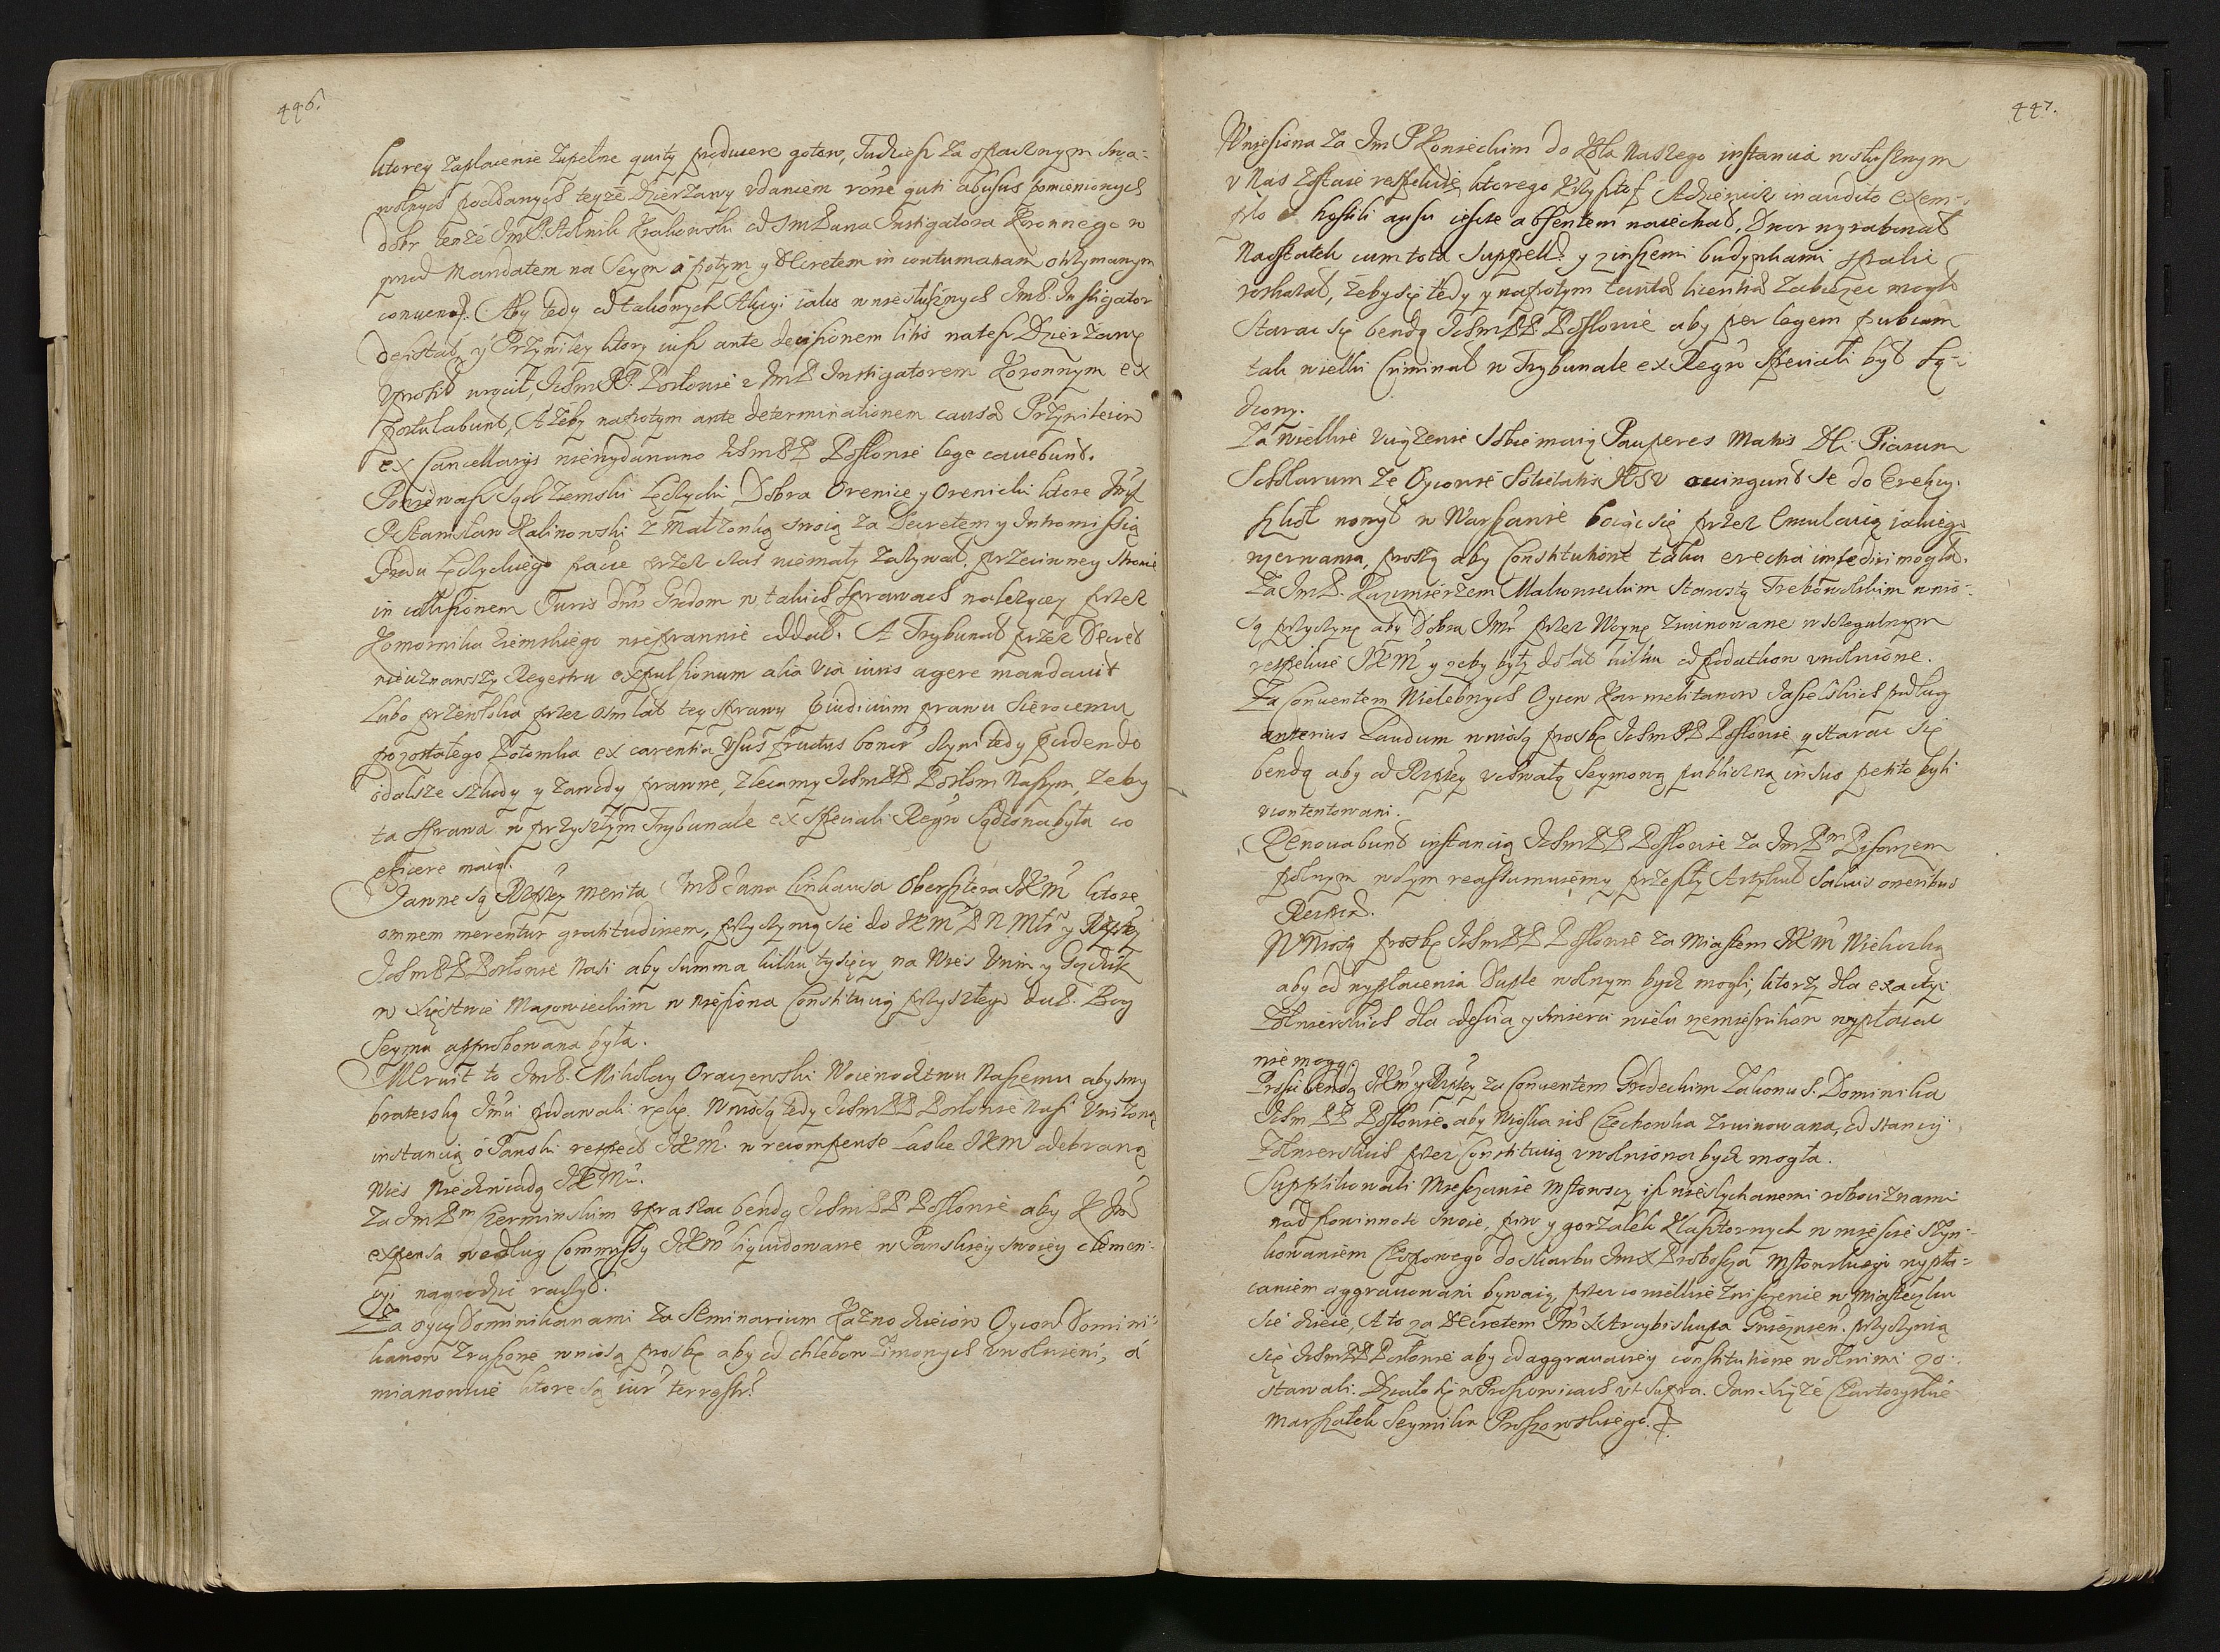 446.
ktorey zapłacenie zupełne quity producere gotow, Tudziesz za opacznym swa-
wolnych poddanych teyże Dzierzawy udaniem rone quti abusus pomienionych
dobr tenże Jm P. Stolnik Krakowski od Jm Pana Instigatora Koronnego w
przod Mandatem na Seym a potym y Decretem in contumatiam otrzymanym
Aby tedy od takowych Akcyi iako niesłusznych JmP. Instigator
desistat, y Przywiley ktory iusz ante decisionem litis natesz Dzierzawę
uprosił wrocił, IchmPP. Posłowie z JmP Instigatorem Koronnym ex
postulabunt, A żeby napotym ante determinationem causae Przywileiow
ex Cancellarijs niewydawano IchmPP Posłowie lege cauebunt.
Ponieważ Sąd Ziemski Łęczycki Dobra Orenice y Orenicki ktore
P Stanisław Kalinowski z Małżonką swoią za Decretem y Intromissią
Grodu Łęczyckiego pace przez czas niemały zazywał, przeciwney stronie
in collisionem Juris Grodom w takich sprawach należącey przez
Komornika Ziemskiego nieprawnie oddał. A Trybunał przez Decret
nieuznawszy Regestru expulsionum alia via iuris agere mandauit
Lubo przewłoka przez osm lat tey sprawy praeiudicium prawu Sierocemu
pozostałego Potomka ex carentia usus fructus bonor czyni tedy
odalsze szkody y zawody prawne, zlecamy IchmPP Posłom Naszym, żeby
ta sprawa w przyszłym Trybunale ex speciali Regro sądzona była co
efficere maią.
Jawne są Rzptey merita JmP Jana Linkausa Obersztera JKM ktore
omnem merentur gratitudinem, przyczynią sie do JKM P N Młć y Rzptey
IchmPP Posłowie Nasi aby summa kilku tysięcy na Wies Unin y
w Xięstwie Mazowieckim wniesiona Constitucią przyszłego da P. Bog
Seymu approbowana była.
Meruit to JmP. Mikołay Oraczewski Woiewodztwu Naszemu abysmy
braterską Jmci podawali rękę. Wniosą tedy IchmPP Posłowie Nasi Uniżoną
instancią o Panski respect JKM. w recompense Laske JKM odebraną
Wies JKMci.
Za JmPm Czerminskim upraszac bendą IchmPP Posłowie aby
expensa według Commissy JKM liquidowane w Panskiey swoiey clemen-
cyi nagrodzic raczył.
Za oycy Dominikanami za Seminarium Kaznodzieiow Oycow Domini-
kanow zruszone wniosą prosbę aby od chlebow zimowych uwolnieni, a
mianowicie ktore są iur terrestr.
447.
Wniesiona za Jm P Konieckim do Koła Naszego instancia w słusznym
u Nas zostaie respekcie, ktorego Krzysztof inaudito exem-
plo hostili ausu iescze absentem naiechał, Dwor wyrabował
Naostatek cum tota suppell. y z inszemi budynkami spalic
roskazał, żeby się tedy y napotym tanta licentia zabiezec mogło
Starac się bendą IchmPP Posłowie aby per legem publicam
tak wielki Criminał w Trybunale ex Regro speciali był są-
dzony.
Za wielkie uciążenie sobie maią Pauperes Matris Dei Piarum
Scholarum że Oycowie Societatis JESU accingunt se do Erekcy.
szkoł nowych w Warszawie boiąc się przez Emulacią iakiego
wzerwania, proszą aby Constitutione taka erectia impediri mogła.
Za JmP. Kazimierzem Makowieckim Starostą Trebowelskim wnio-
są przyczynę aby Dobra Jmci przez Woynę zruinowane w sczegulnym
respekcie JKM y żeby były do lat kilku od podatkow uwolnione.
Za Conuentem Wielebnych Oycow Karmelitanow Jasielskich podług
anterius Laudum wniosą prosbę IchmPP Posłowie y starac się
bendą aby od Rzptey uchwałą Seymową publiczną in suo petito byli
ucontentowani.
Renouabunt instancią IchmPP Posłowie za JmPm Pisarzem
polnym w czym reassumuiemy przeszły Artykuł Saluis oneribus
Reipubl.
Wniosą prosbę IchmPP Posłowie za Miastem JKM Wieliczką
aby od wypłacenia Duple wolnym bydz mogli, ktorzy dla exactyi
Żołnierskich dla odeścia y smierci wielu rzemiesnikow wypłacac
nie mogą.
Prosic bendą JKM y Rzptey za Conuentem Grodeckim Zakonu S. Dominika
IchmPP Posłowie aby Wioska ich Czechowka zruinowana, od stancij
Żołnierskich przez Constitucią uwolniona bydz mogła.
Supplikowali Miesczanie Mstowscy iż niesłychanemi robociznami
nad powinnosc swoie, piw y gorzałek Klasztornych w miescie szyn-
kowaniem Czopowego do skarbu JmX Proboscza Mstowskiego wypła-
caniem aggrauowani bywaią, przez co wielkie zniszczenie w Miasteczku
sie dzieie, A to za Decretem Jm X Arcybiskupa Gnieznien. przyczynią
się IchmPP Posłowie aby od aggrauaciey constitutione wolnimi zo-
stawali. Działo się w Proszowicach ut supra. Jan Xiąże Czartoryskie
Marszałek Seymiku Proszowskiego.